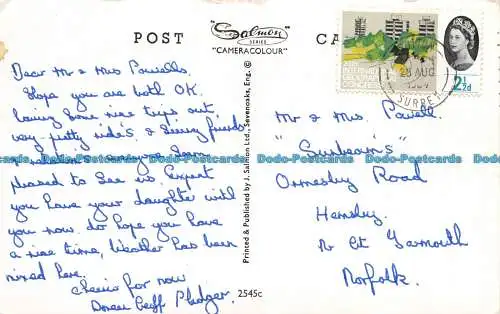 POST
Salmon
SERIES
"CAMERACOLOUR"
CA
Dear Mr & Mrs Powells.
Hope you are both OK.
having Some nice trips out,
very pretty rides & Seeing friends
pleased to See us. Expect
you have your daughter with
you now. do hope you have
a nice time, Weather has been
mixed here.
Cheerio for now
Doreen Geoff Pledger.
Printed & Published by J. Salmon Ltd., Sevenoaks, Eng. ©
2545c
28 AUG
1964
SURRE
2½d
Mr & Mrs. Powell
"Sunbeams"
Ormesby Road
Hemsby.
Nr Gt Yarmouth
Norfolk.
Dodo-Postcards Dodo-Postcards Dodo-Postcards Dodo-Postcards